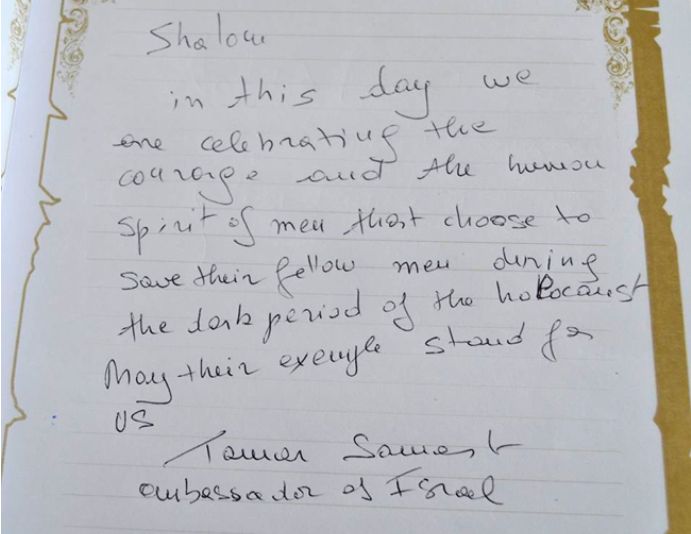 Shalom
in this day we
are celebrating the
courage and the human
spirit of men that choose to
save their fellow men during
the dark period of the holocaust
May their example stand for
us
Tamar Samash
ambassador of Israel